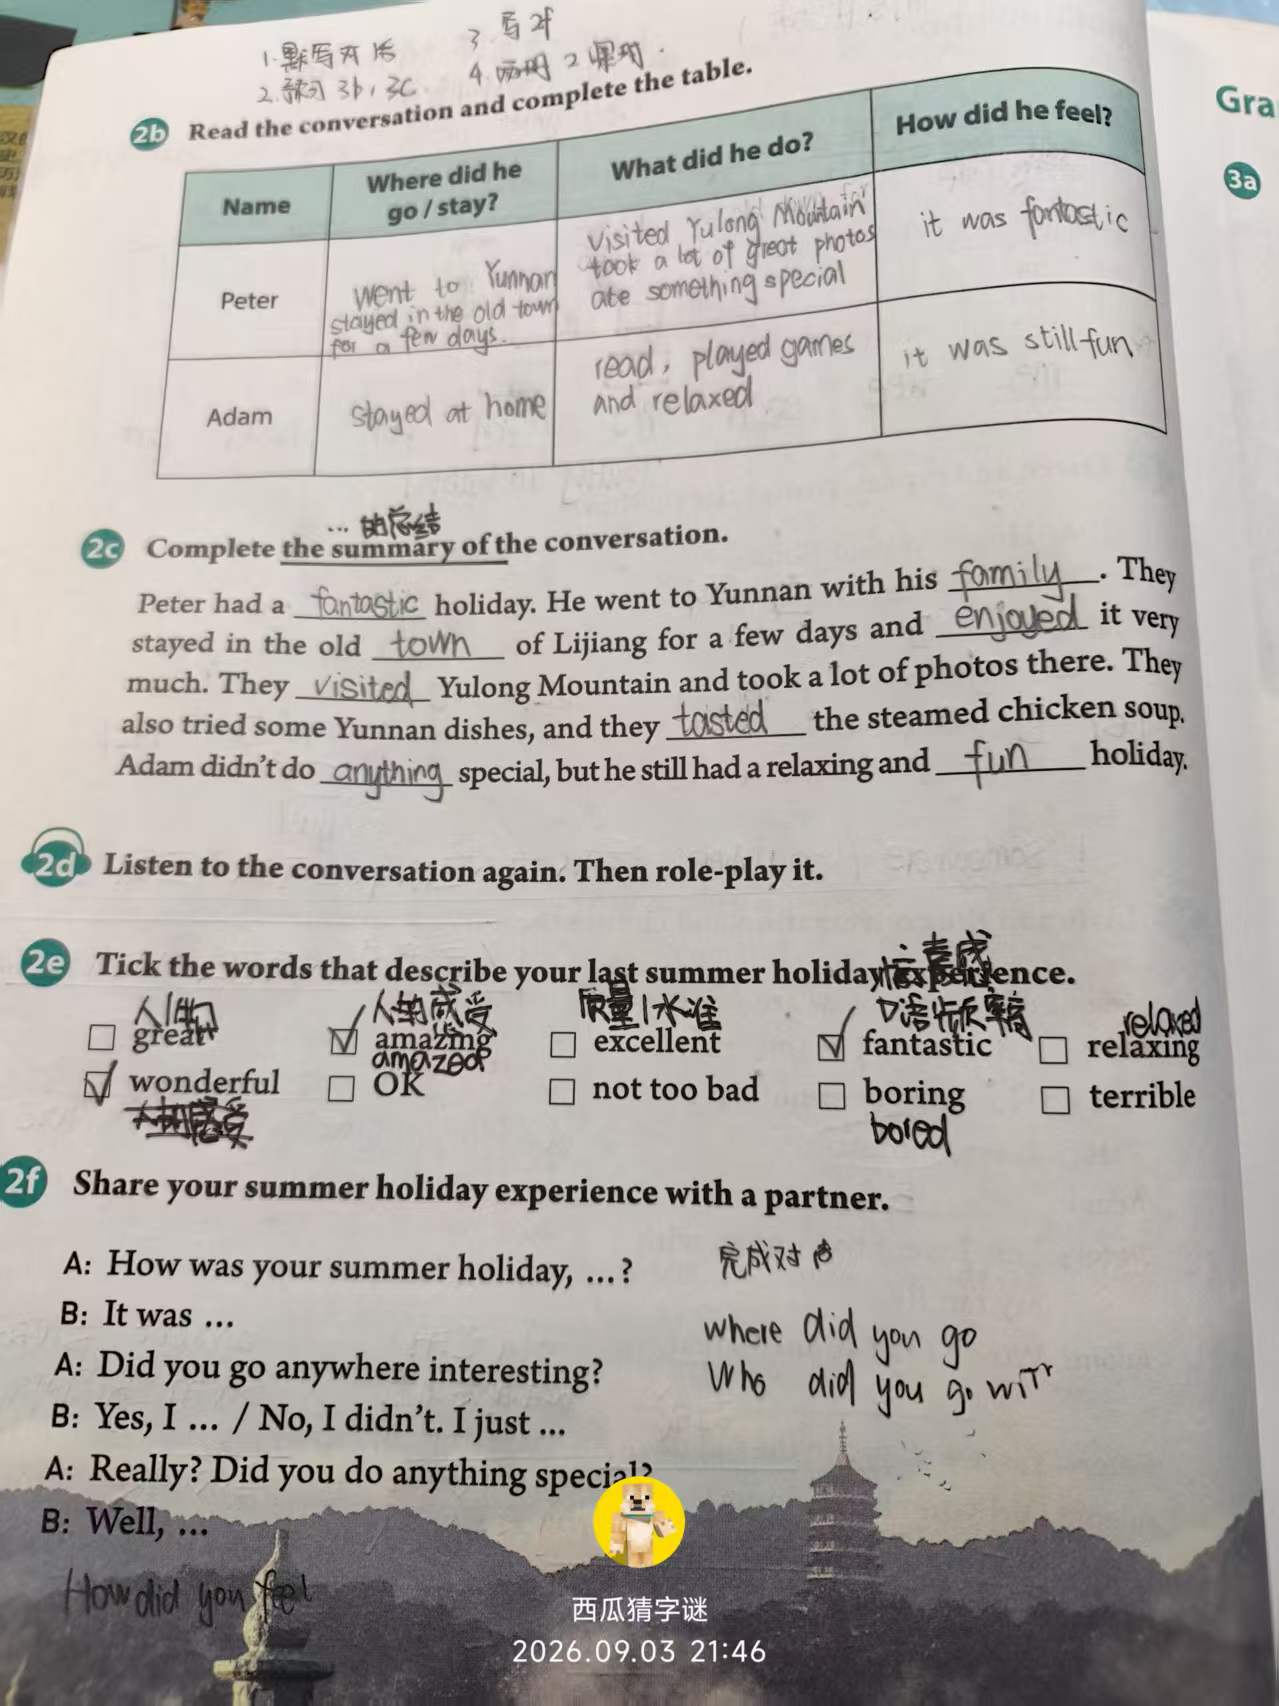 1.默写
3.写2f
2.预习3b，3c.
4.2课时.
2b Read the conversation and complete the table.
Name
Where did he go / stay?
What did he do?
How did he feel?
Peter
went to Yunnan
stayed in the old town
for a few days.
visited Yulong Mountain
took a lot of great photos
ate something special
it was fantastic
Adam
stayed at home
read, played games
and relaxed
it was still fun
Gra
3a
… 的总结
2c Complete the summary of the conversation.
Peter had a fantastic holiday. He went to Yunnan with his family. They
stayed in the old town of Lijiang for a few days and enjoyed it very
much. They visited Yulong Mountain and took a lot of photos there. They
also tried some Yunnan dishes, and they tasted the steamed chicken soup.
Adam didn't do anything special, but he still had a relaxing and fun holiday.
2d Listen to the conversation again. Then role-play it.
2e Tick the words that describe your last summer holiday experience.
人的感受
质量/水准
relaxed
great
amazing
excellent
fantastic
relaxing
amazed
wonderful
OK
not too bad
boring
terrible
bored
2f Share your summer holiday experience with a partner.
A: How was your summer holiday, …?
完成对
B: It was …
where did you go
A: Did you go anywhere interesting?
Who did you go with
B: Yes, I … / No, I didn't. I just …
A: Really? Did you do anything special?
B: Well, …
How did you feel
西瓜猜字谜
2026.09.03 21:46